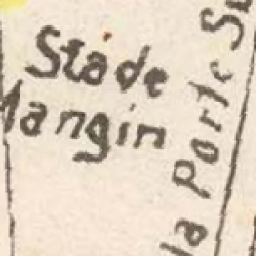 Stade
Mangin
la Porte S